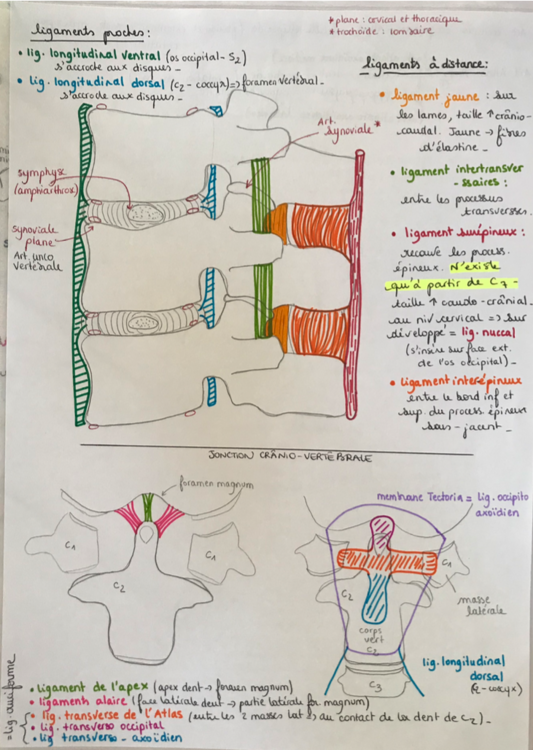 ligaments proches:
• lig. longitudinal ventral (os occipital - S2)
s'accroche aux disques_
• lig. longitudinal dorsal (C2 - coccyx) => foramen vertébral_
s'accroche aux disques_
* plane : cervical et thoracique
* trochoïde : lombaire
ligaments à distance:
• ligament jaune : sur
les lames, taille ↑ crânio-
caudal. Jaune → fibres
d'élastine_
• ligament intertransver
-ssaires :
entre les processus
transverses_
• ligament surépineux :
recouvre les process.
épineux. N'existe
qu'à partir de C7_
taille ↑ caudo-crânial_
au niv cervical => sur
développé = lig. nuccal
(s'insère sur face ext.
de l'os occipital)_
• ligament interépineux
entre le bord inf et
sup. du process. épineux
sous-jacent_
Art.
synoviale *
symphyse
(amphiarthrose)
synoviale
plane
Art. unco
vertébrale
JONCTION CRÂNIO-VERTÉBRALE
foramen magnum
C1
C1
C2
membrane Tectoria = lig. occipito
axoïdien
C1
C2
masse
latérale
corps
vert
C2
C3
lig. longitudinal
dorsal
(2-coccyx)
• ligament de l'apex (apex dent → foramen magnum)
• ligaments alaire (face latérale dent → partie latérale for magnum)
• lig. transverse de l'Atlas (entre les 2 masses lat → au contact de la dent de C2)_
• lig. transverso occipital
• lig. transverso-axoïdien
= lig. cruciforme